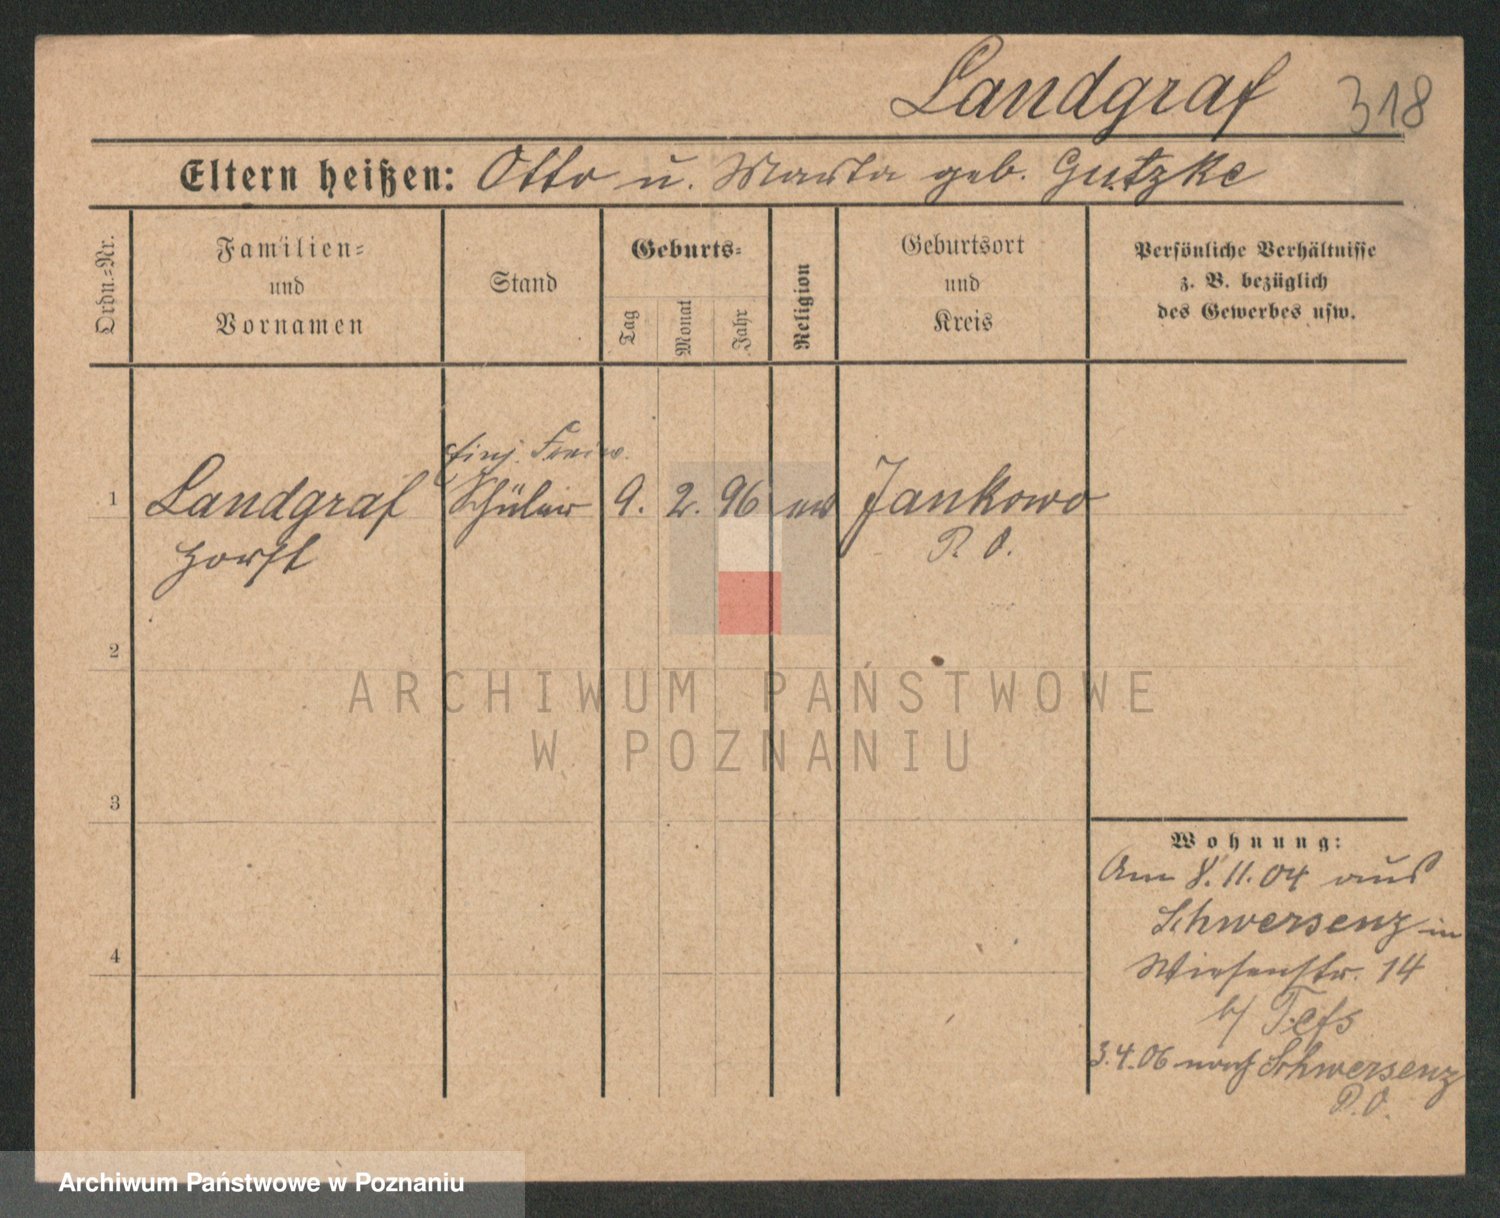 Landgraf 318
Eltern heißen: Otto u. Marta geb. Gutzke
Ordn.=Nr.
Familien=
und
Vornamen
Stand
Geburts=
Tag
Monat
Jahr
Religion
Geburtsort
und
Kreis
Persönliche Verhältnisse
z. B. bezüglich
des Gewerbes usw.
Einj. Freiw.
1 Landgraf Schüler 9. 2. 96 ev Jankowo
Horst P. O.
2
ARCHIWUM PAŃSTWOWE
W POZNANIU
3
Wohnung:
Am 8.11.04 aus
Schwersenz in
4 Wiesenstr. 14
b/
3.4.06 nach Schwersenz
P.O.
Archiwum Państwowe w Poznaniu